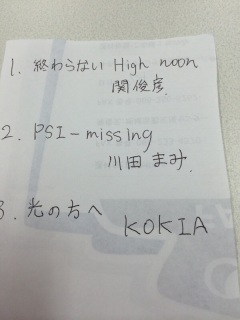 1. 終わらない High noon
関俊彦
2. PSI-missing
川田まみ
3. 光の方へ
KOKIA